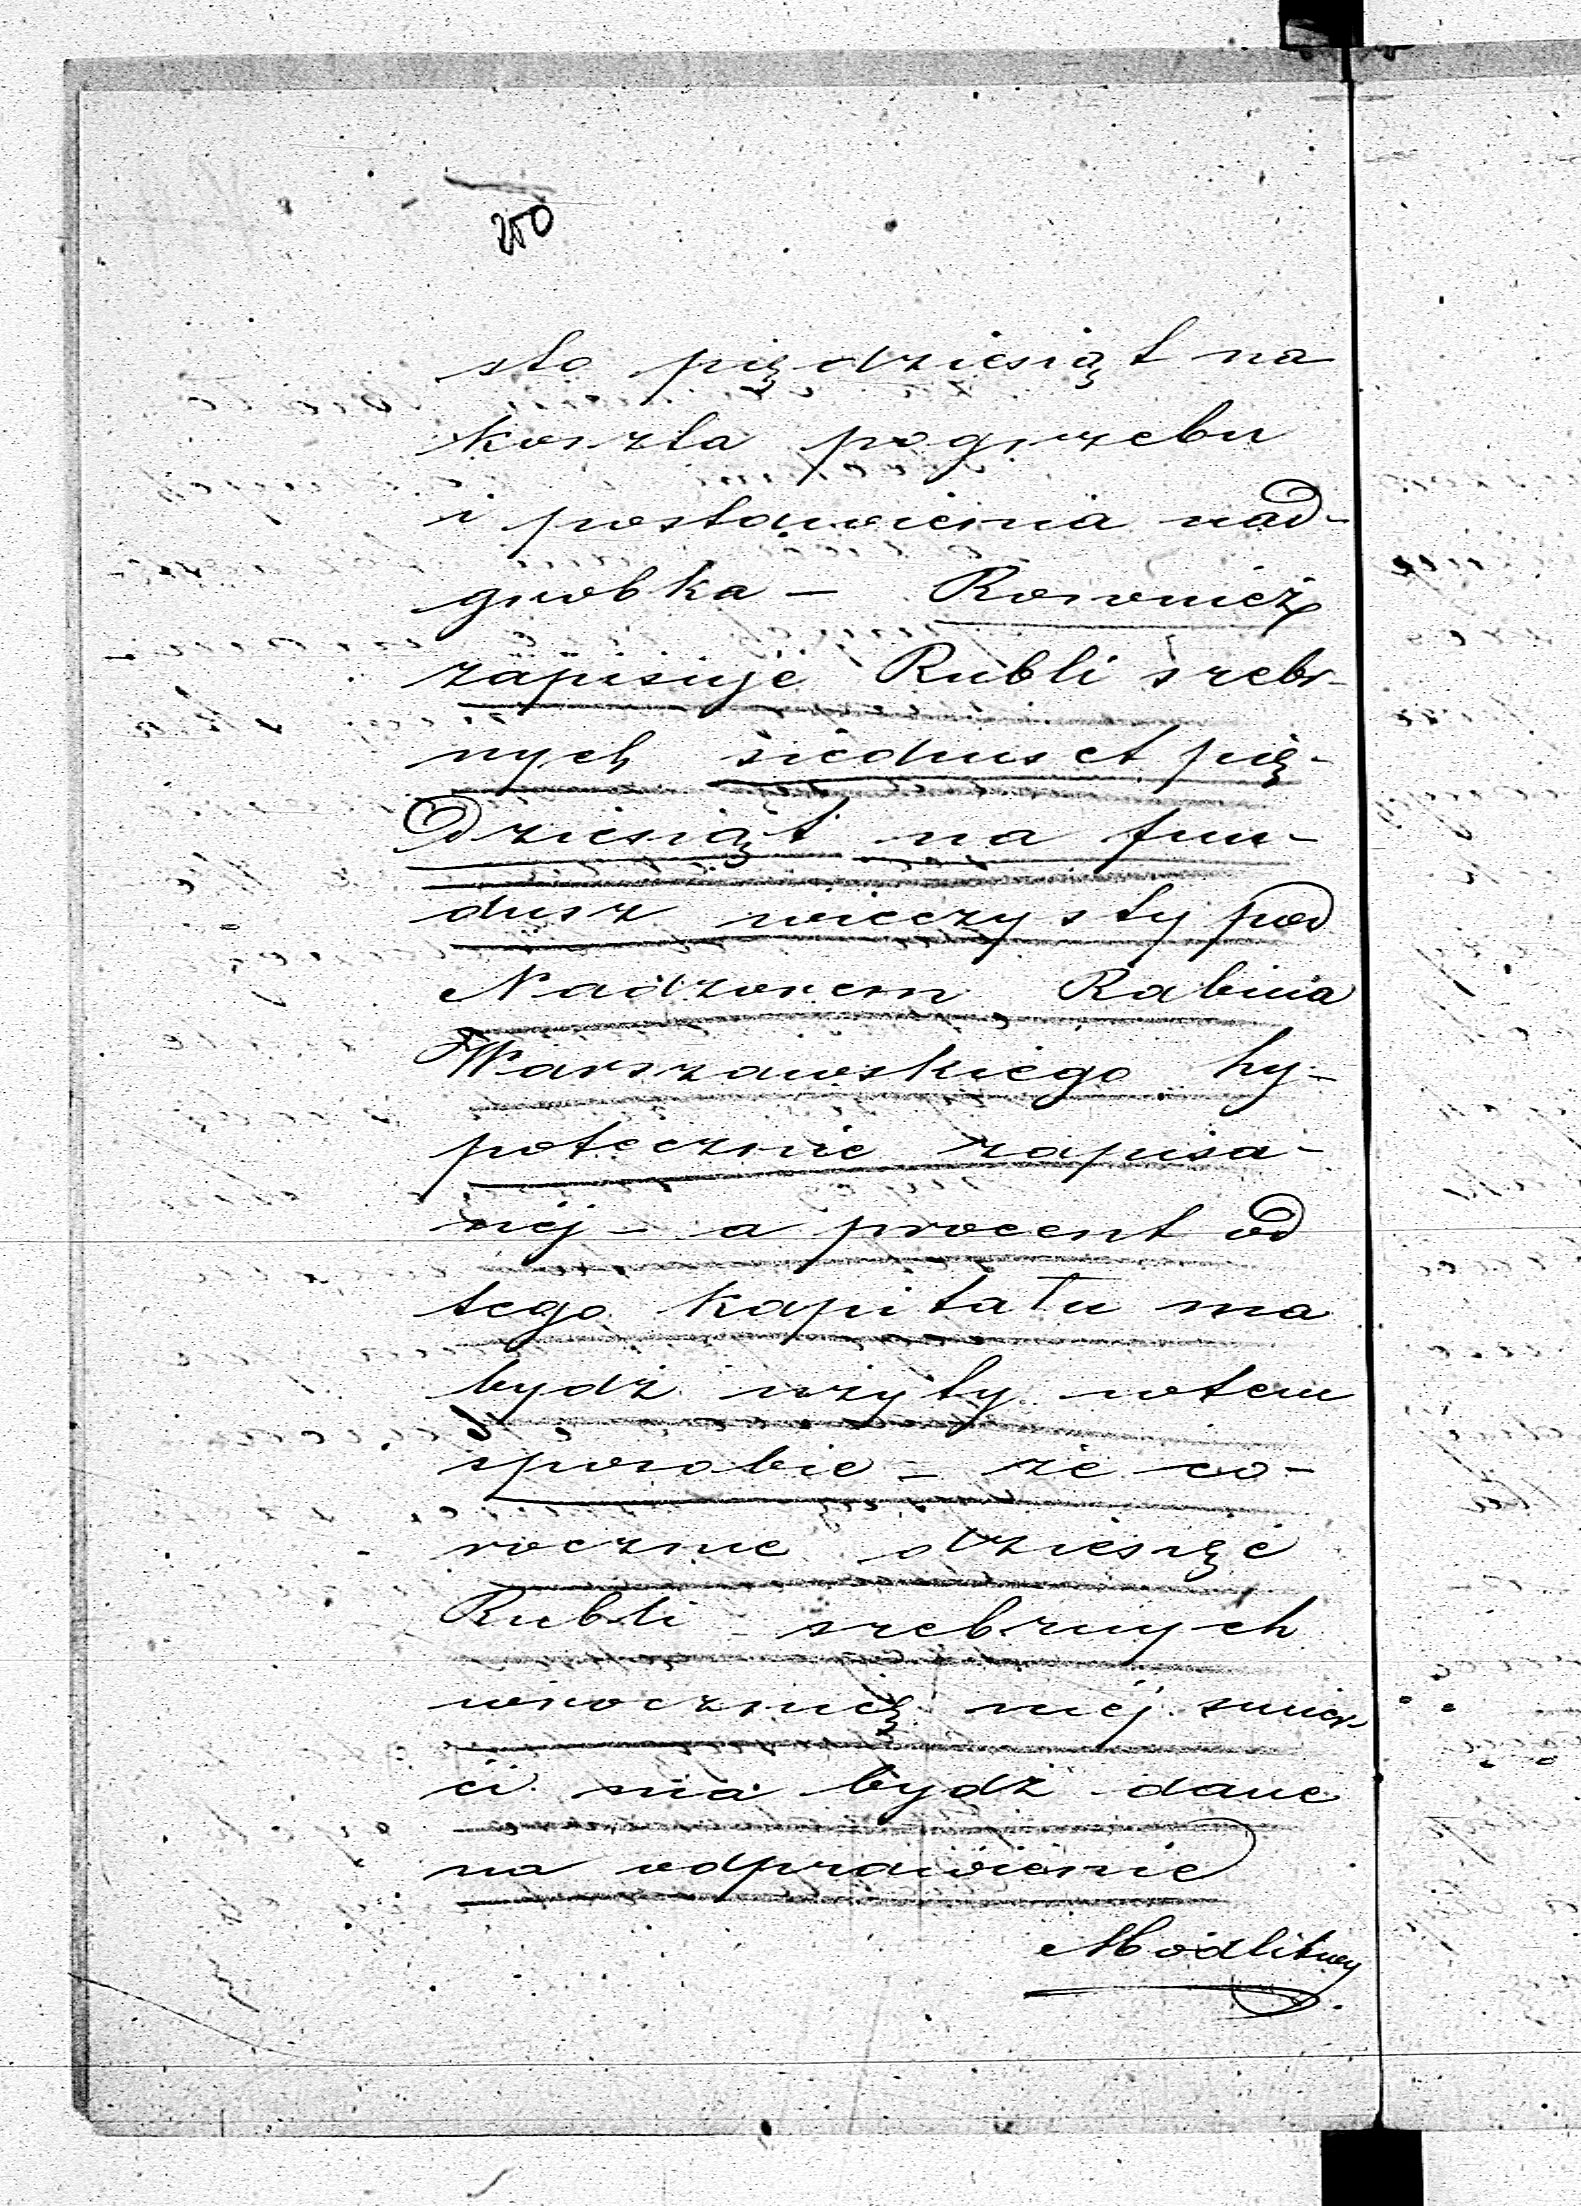 250
sto piędziesiąt na
koszta pogrzebu
i postawienia nad-
grobka – Rownież
zapisuje Rubli srebr-
nych siedmset pię-
dziesiąt na fun-
dusz wieczysty pod
Nadzorem Rabina
Warszawskiego hy-
potecznie zapisa-
nej – a procent od
tego kapitału ma
bydź użyty wtem
sposobie – że co-
rocznie dziesięć
Rubli srebrnych
wrocznicę mej śmier-
ci ma bydź dane
na odprawienie
Modlitwy